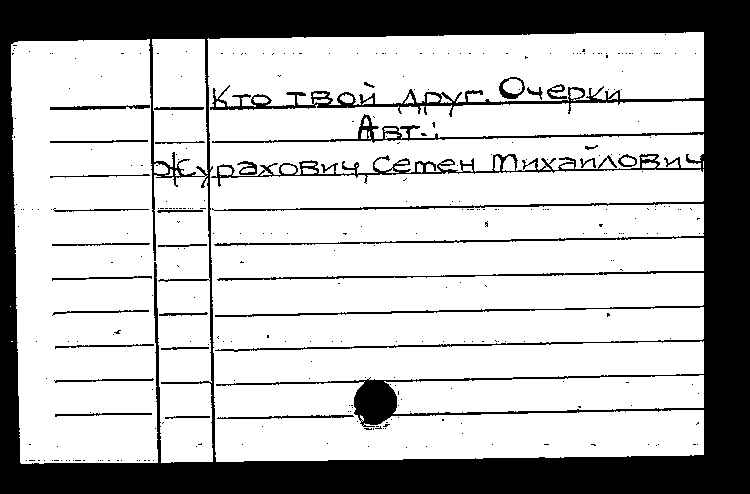 Кто твой друг. Очерки
Авт.:
Журахович, Семен Михайлович